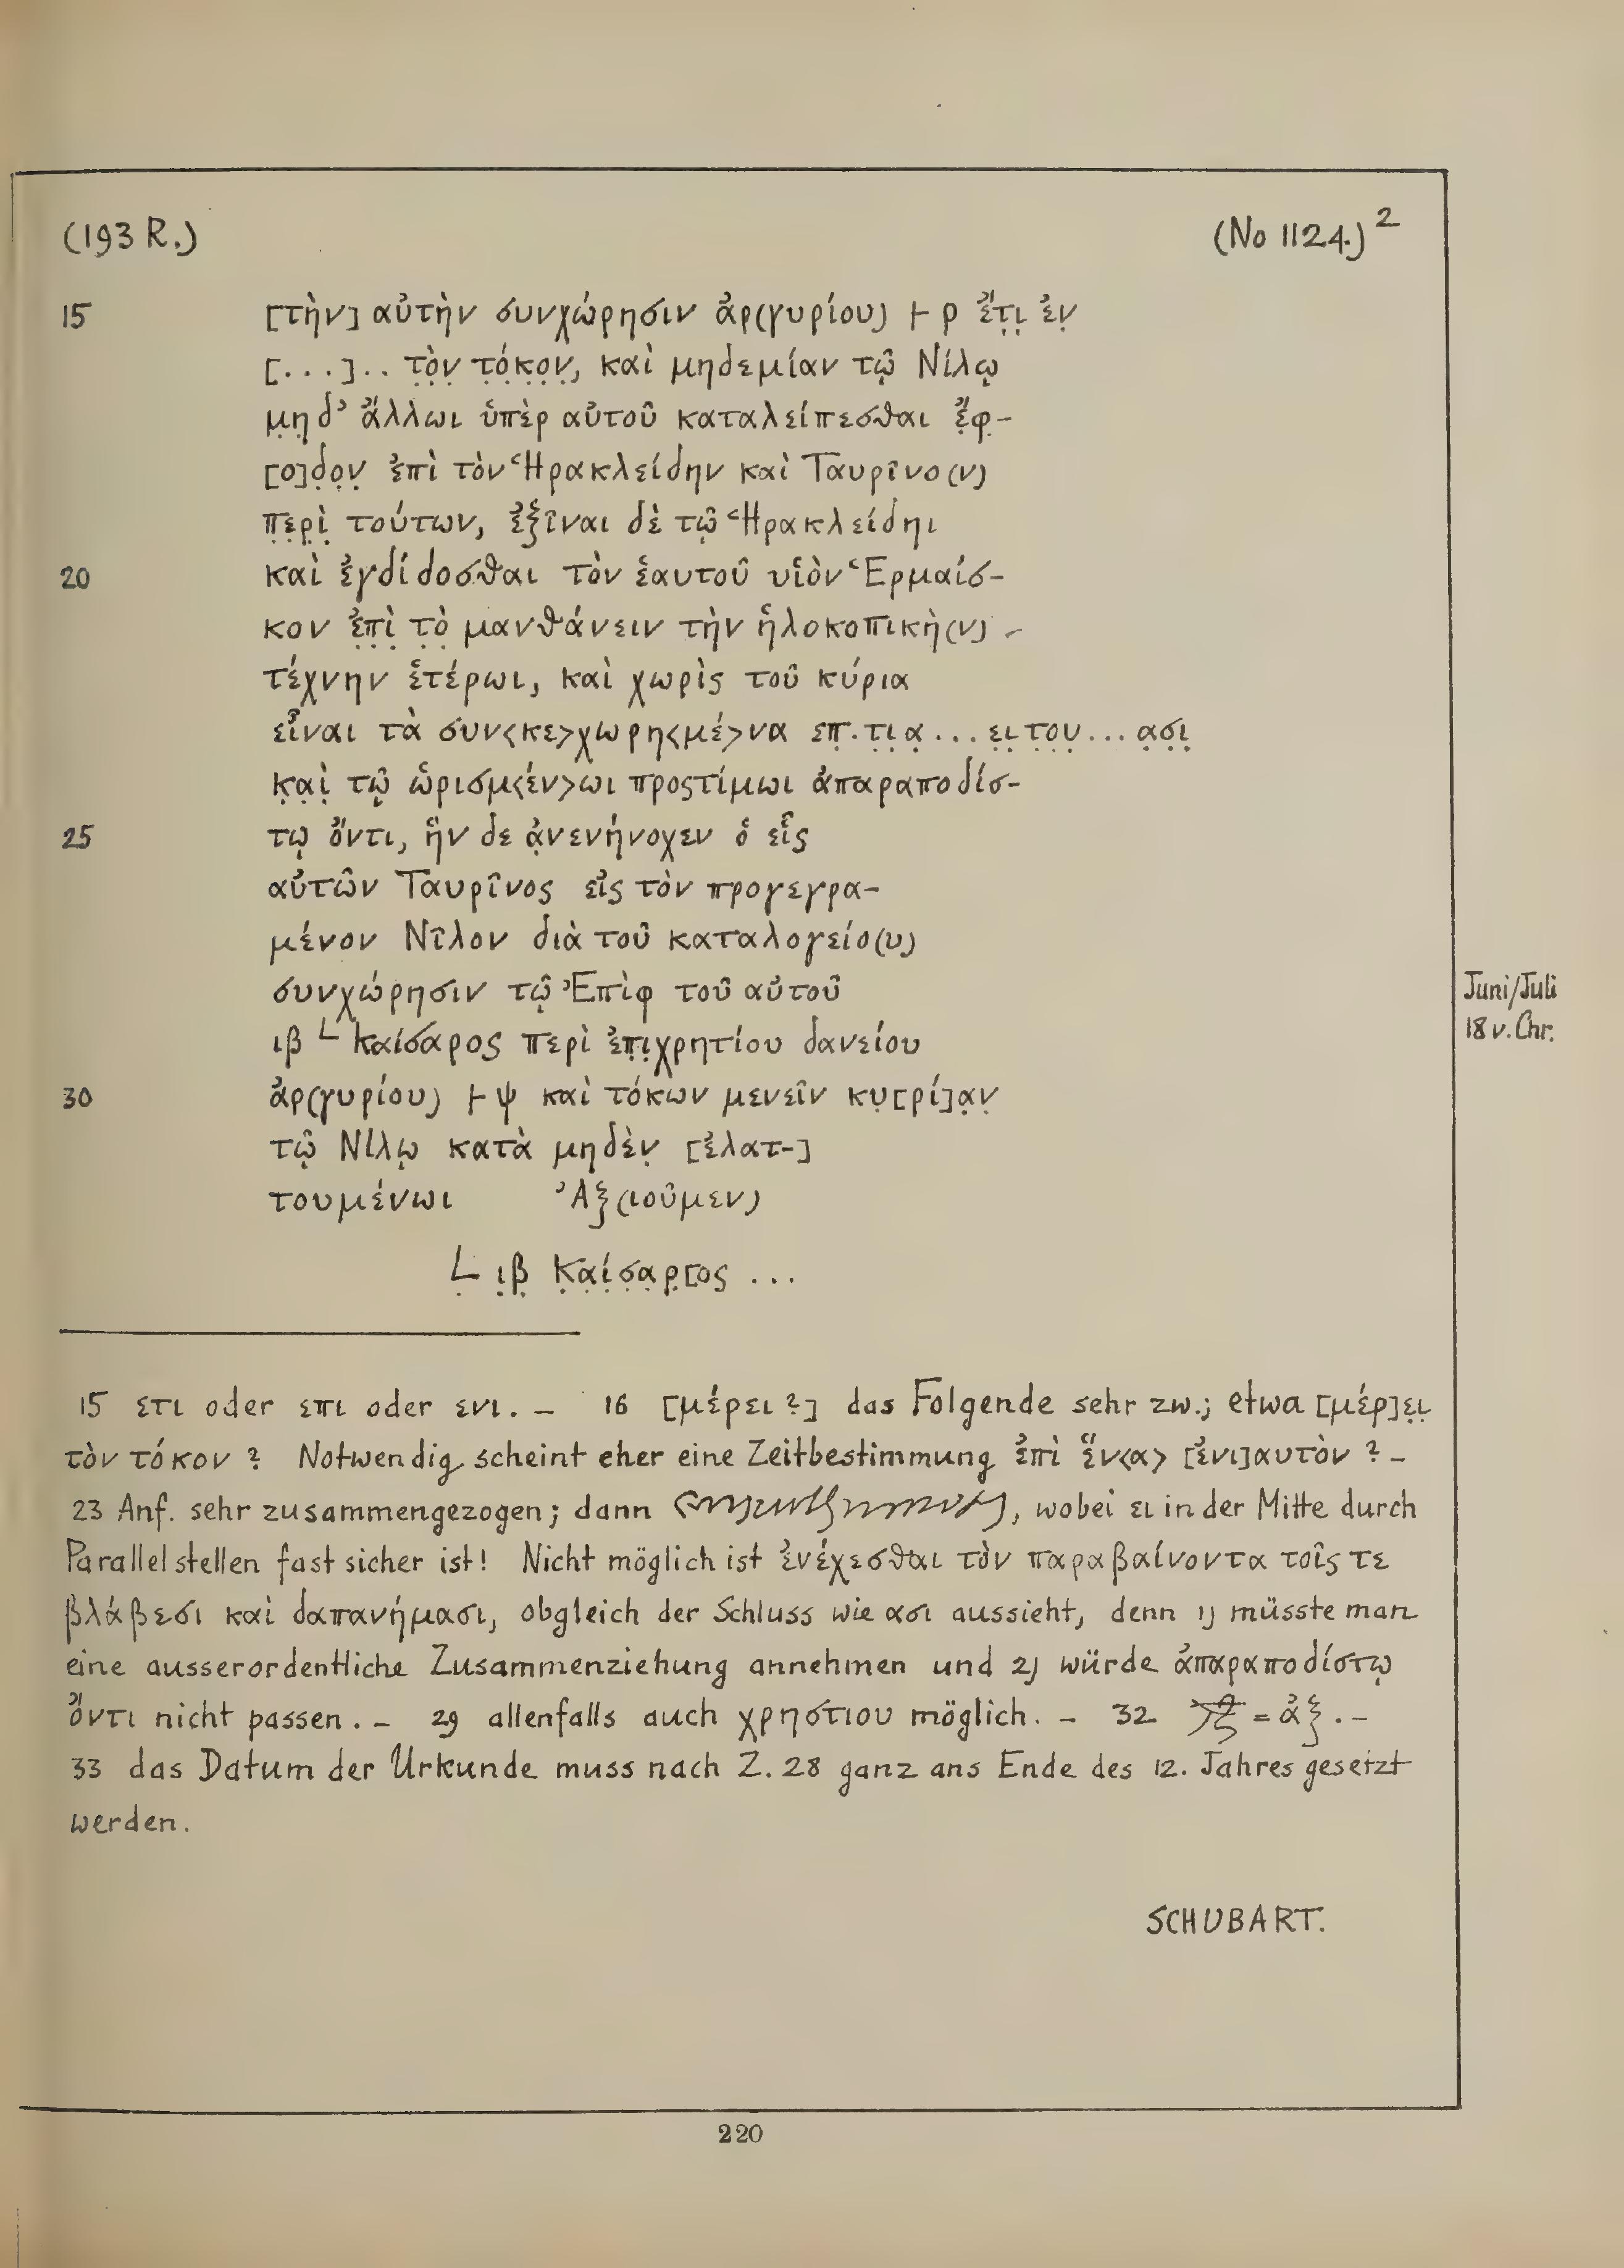 (193 R.) (No 1124.) 2
15 [τὴν] αὐτὴν συνχώρησιν ἀρ(γυρίου) ⊢ ρ ἔ̣τ̣ι̣ ἐν̣
[...].. τ̣ὸ̣ν̣ τ̣ό̣κ̣ο̣ν̣, καὶ μηδεμίαν τῷ Νίλῳ
μ̣η̣δ̓ ἄλλωι ὑπὲρ αὐτοῦ καταλείπεσθαι ἔ̣φ̣-
[ο]δ̣ο̣ν̣ ἐπὶ τὸν Ἡρακλείδην καὶ Ταυρῖνο(ν)
π̣ε̣ρ̣ὶ̣ τούτων, ἐξῖναι δὲ τῷ Ἡρακλείδηι
20 καὶ ἐγδίδοσθαι τὸν ἑαυτοῦ υἱὸν Ἑρμαίσ-
κον ἐ̣π̣ὶ̣ τ̣ὸ̣ μανθάνειν τὴν ἡλοκοπικὴ(ν)
τέχνην ἑτέρωι, καὶ χωρὶς τοῦ κύρια
εἶναι τὰ συν<κε>χωρη<μέ>να επ̣.τ̣ι̣α̣...ε̣ι̣τ̣ο̣υ̣...α̣σ̣ι̣
κ̣α̣ὶ̣ τῷ̣ ὡρισμ<έν>ωι προςτίμωι ἀπαραποδίσ-
25 τῳ ὄντι, ἣν δε ἀ̣νενήνοχεν ὁ εἷς
αὐτῶν Ταυρῖνος εἰς τὸν προγεγρα-
μένον Νῖλον διὰ τοῦ καταλογείο(υ)
συνχώρησιν τῷ Ἐπὶφ τοῦ αὐτοῦ
Juni/Juli
ιβ L Καίσαρος περὶ ἐπ̣ι̣χρητίου δανείου
18 v. Chr.
30 ἀρ(γυρίου) ⊢ ψ καὶ τόκων μενεῖν κυ̣[ρί]α̣ν̣
τῷ Νίλῳ κατὰ μηδὲν̣ [ἐλατ-]
τουμένωι Ἀξ(ιοῦμεν)
Ḷ ι̣β̣ Κ̣α̣ί̣σ̣α̣ρ̣[ος ...
15 ετι oder επι oder ενι. – 16 [μέρει ?] das Folgende sehr zw.; etwa [μέρ]ε̣ι̣
τὸν τόκον ? Notwendig scheint eher eine Zeitbestimmung ἐπὶ ἕν<α> [ἐνι]αυτὸν ? –
23 Anf. sehr zusammengezogen; dann , wobei ει in der Mitte durch
Parallelstellen fast sicher ist! Nicht möglich ist ἐνέχεσθαι τὸν παραβαίνοντα τοῖς τε
βλάβεσι καὶ δαπανήμασι, obgleich der Schluss wie ασι aussieht, denn 1) müsste man
eine ausserordentliche Zusammenziehung annehmen und 2) würde ἀπαραποδίστῳ
ὄντι nicht passen. – 29 allenfalls auch χρηστιου möglich. – 32 = ἀξ. –
33 das Datum der Urkunde muss nach Z. 28 ganz ans Ende des 12. Jahres gesetzt
werden.
SCHUBART.
220